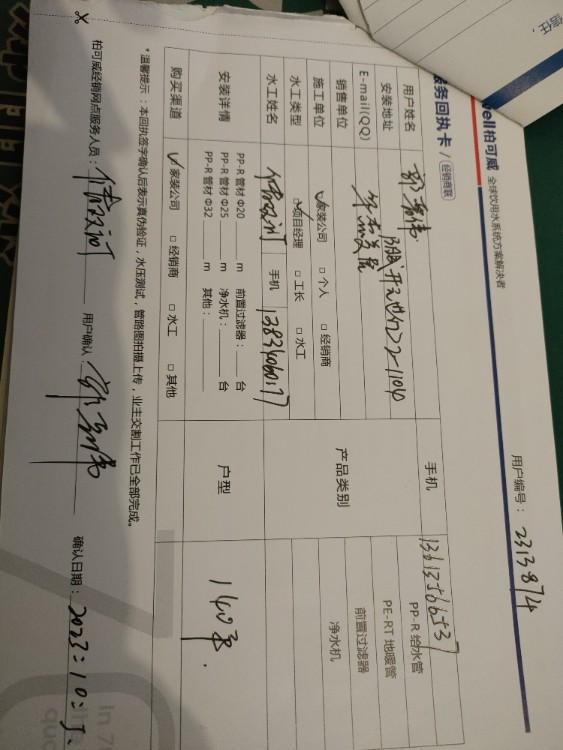 信任，
ell柏可威 全球饮用水系统方案解决者
用户编号： 2313874
服务回执卡 / 经销商联
用户姓名 手机 13613566537
安装地址 开元地20 22-1104 PP-R 给水管
E-mail(QQ) PE-RT 地暖管
销售单位 产品类别 前置过滤器
施工单位 ☑家装公司 □个人 □经销商 净水机
水工类型 ☑项目经理 □工长 □水工
水工姓名 手机 13834060177
安装详情 PP-R 管材 Φ20 ____ m 前置过滤器：____ 台 户型 140
PP-R 管材 Φ25 ____ m 净水机：____ 台
PP-R 管材 Φ32 ____ m 其他：____
购买渠道 ☑家装公司 □经销商 □水工 □其他
*温馨提示：本回执签字确认后表示真伪验证，水压测试，管路图拍摄上传，业主交割工作已全部完成。
柏可威经销网点服务人员： 用户确认： 确认日期：2023=10=5.
In 7
the
qua